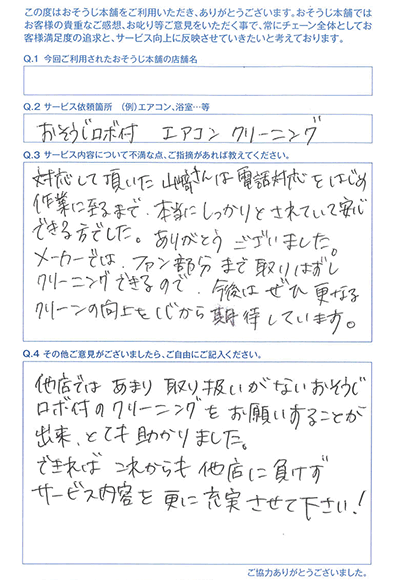 この度はおそうじ本舗をご利用いただき、ありがとうございます。おそうじ本舗では
お客様の貴重なご感想、お叱り等ご意見をいただく事で、常にチェーン全体としてお
客様満足度の追求と、サービス向上に反映させていきたいと考えております。
Q.1 今回ご利用されたおそうじ本舗の店舗名
Q.2 サービス依頼箇所 （例）エアコン、浴室…等
おそうじロボ付 エアコン クリーニング
Q.3 サービス内容について不満な点、ご指摘があれば教えてください。
対応して頂いた山崎さんは電話対応をはじめ
作業に至るまで、本当にしっかりとされていて安心
できる方でした。ありがとうございました。
メーカーでは、ファン部分まで取りはずし
クリーニングできるので、今後はぜひ更なる
クリーンの向上を心から期待しています。
Q.4 その他ご意見がございましたら、ご自由にご記入ください。
他店ではあまり取り扱いがないおそうじ
ロボ付のクリーニングをお願いすることが
出来、とても助かりました。
できればこれからも他店に負けず
サービス内容を更に充実させて下さい！
ご協力ありがとうございました。